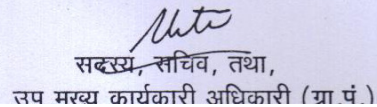 सदस्य, सचिव, तथा,
उप मुख्य कार्यकारी अधिकारी (ग्रा.पं.)